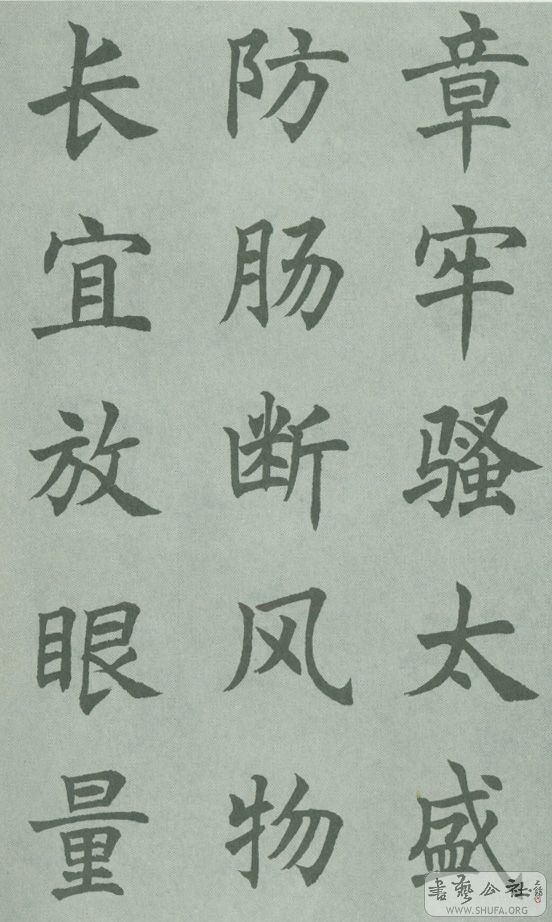 章牢骚太盛
防肠断风物
长宜放眼量
書藝公社
WWW.SHUFA.ORG